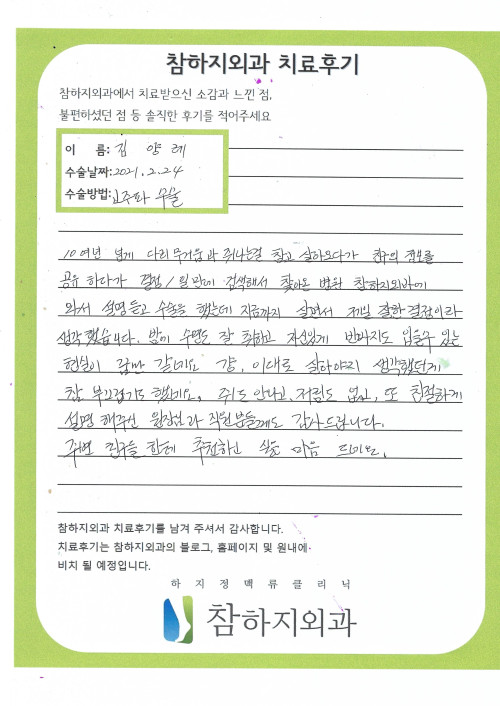 참하지외과 치료후기
참하지외과에서 치료받으신 소감과 느낀 점,
불편하셨던 점 등 솔직한 후기를 적어주세요
이 름: 김 양 례
수술날짜: 2021. 2. 24
수술방법: 고주파 수술
10여년 넘게 다리 무거움과 쥐나는걸 참고 살아오다가 친구의 정보를
공유 하다가 결정 1일만에 검색해서 찾아온 병원 참하지외과에
와서 설명듣고 수술을 했는데 지금까지 살면서 제일 잘한 결정이라
생각했습니다. 밤에 수면도 잘 취하고 자신있게 반바지도 입을수 있는
현실이 꿈만 같네요 걍, 이대로 살아야지 생각했던게
참 부끄럽기도 했네요, 쥐도 안나고, 저림도 없고, 또 친절하게
설명 해주신 원장님과 직원분들께도 감사드립니다.
주변 친구들 한테 추천하고 싶은 마음 드네요.
참하지외과 치료후기를 남겨 주셔서 감사합니다.
치료후기는 참하지외과의 블로그, 홈페이지 및 원내에
비치 될 예정입니다.
하지정맥류클리닉
참하지외과